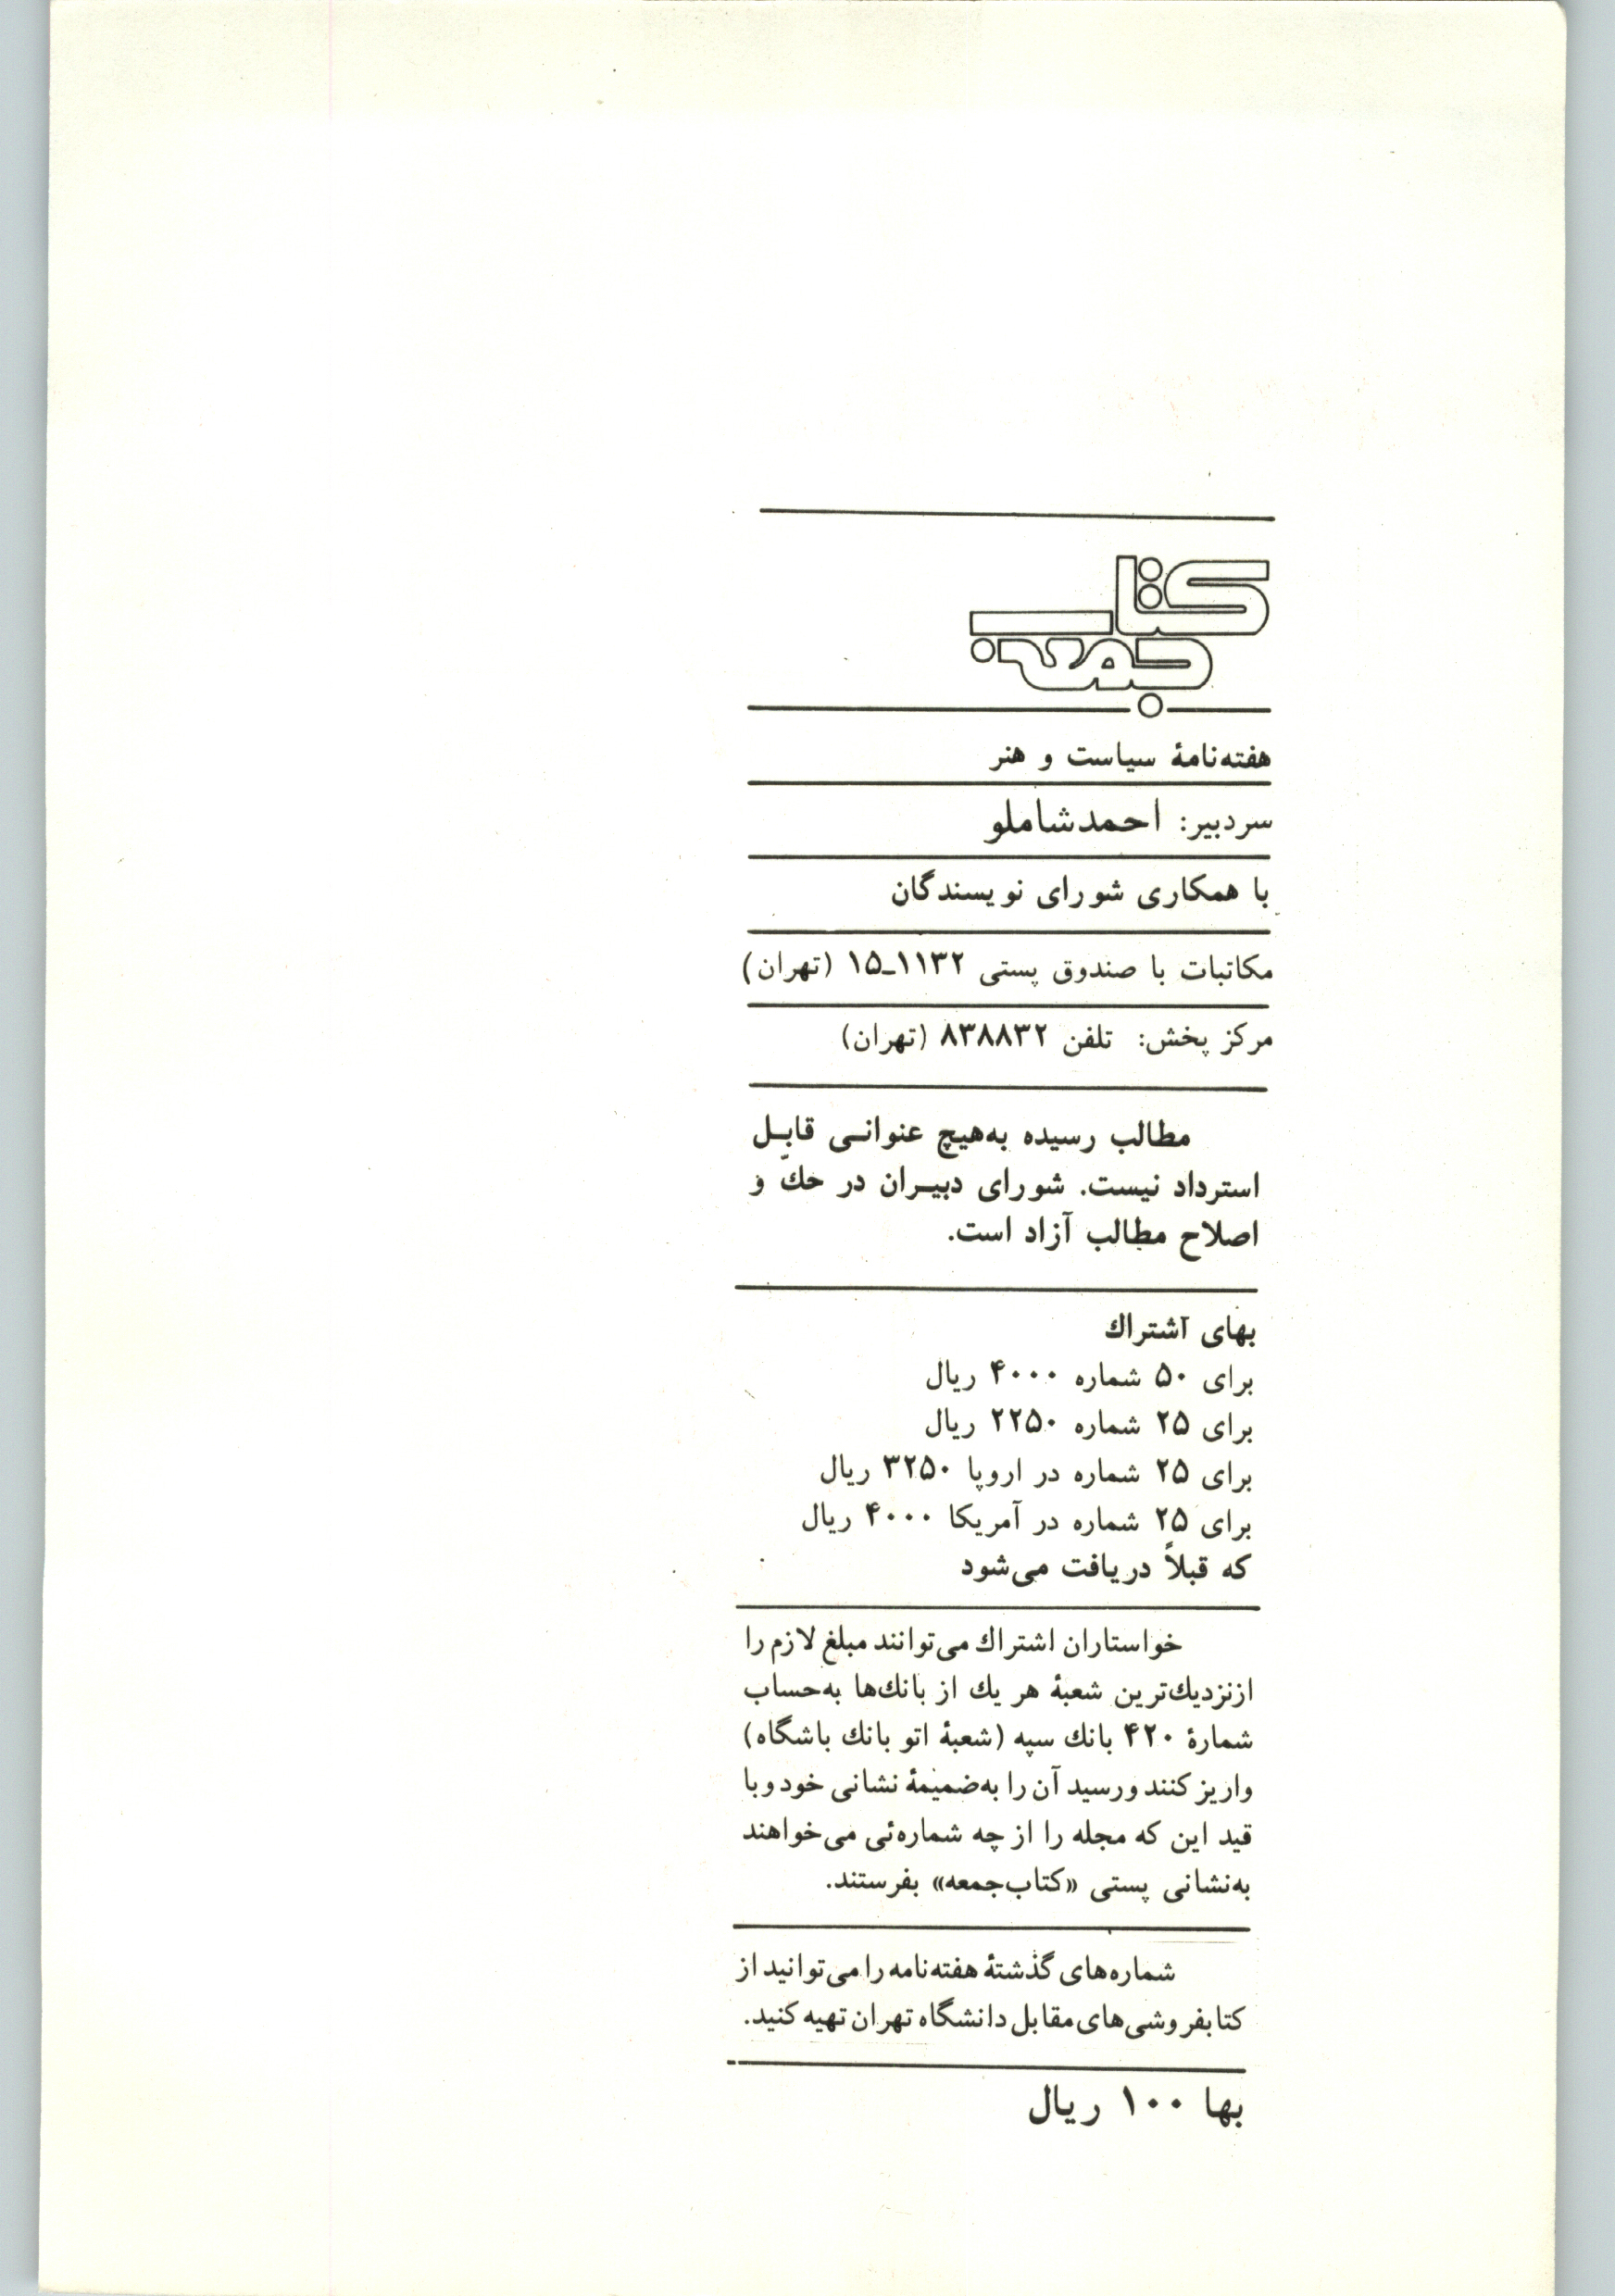 کتاب
جمعه
هفته‌نامهٔ سیاست و هنر
سردبیر: احمد شاملو
با همکاری شورای نویسندگان
مکاتبات با صندوق پستی ۱۱۳۲ـ۱۵ (تهران)
مرکز پخش: تلفن ۸۳۸۸۳۲ (تهران)
مطالب رسیده به‌هیچ عنوانـی قابـل
استرداد نیست. شورای دبیـران در حكّ و
اصلاح مطالب آزاد است.
بهای اشتراك
برای ۵۰ شماره ۴۰۰۰ ریال
برای ۲۵ شماره ۲۲۵۰ ریال
برای ۲۵ شماره در اروپا ۳۲۵۰ ریال
برای ۲۵ شماره در آمریکا ۴۰۰۰ ریال
که قبلاً دریافت می‌شود
خواستاران اشتراك می‌توانند مبلغ لازم را
ازنزدیك‌ترین شعبهٔ هر یك از بانك‌ها به‌حساب
شمارهٔ ۴۲۰ بانك سپه (شعبهٔ اتو بانك باشگاه)
واریز کنند و رسید آن را به‌ضمیمهٔ نشانی خود و با
قید این که مجله را از چه شماره‌ئی می‌خواهند
به‌نشانی پستی «کتاب‌جمعه» بفرستند.
شماره‌های گذشتهٔ هفته‌نامه را می‌توانید از
کتابفروشی‌های مقابل دانشگاه تهران تهیه کنید.
بها ۱۰۰ ریال